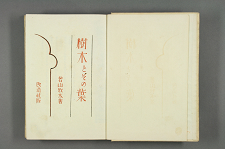 樹木とその葉
若山牧水著
改造社版